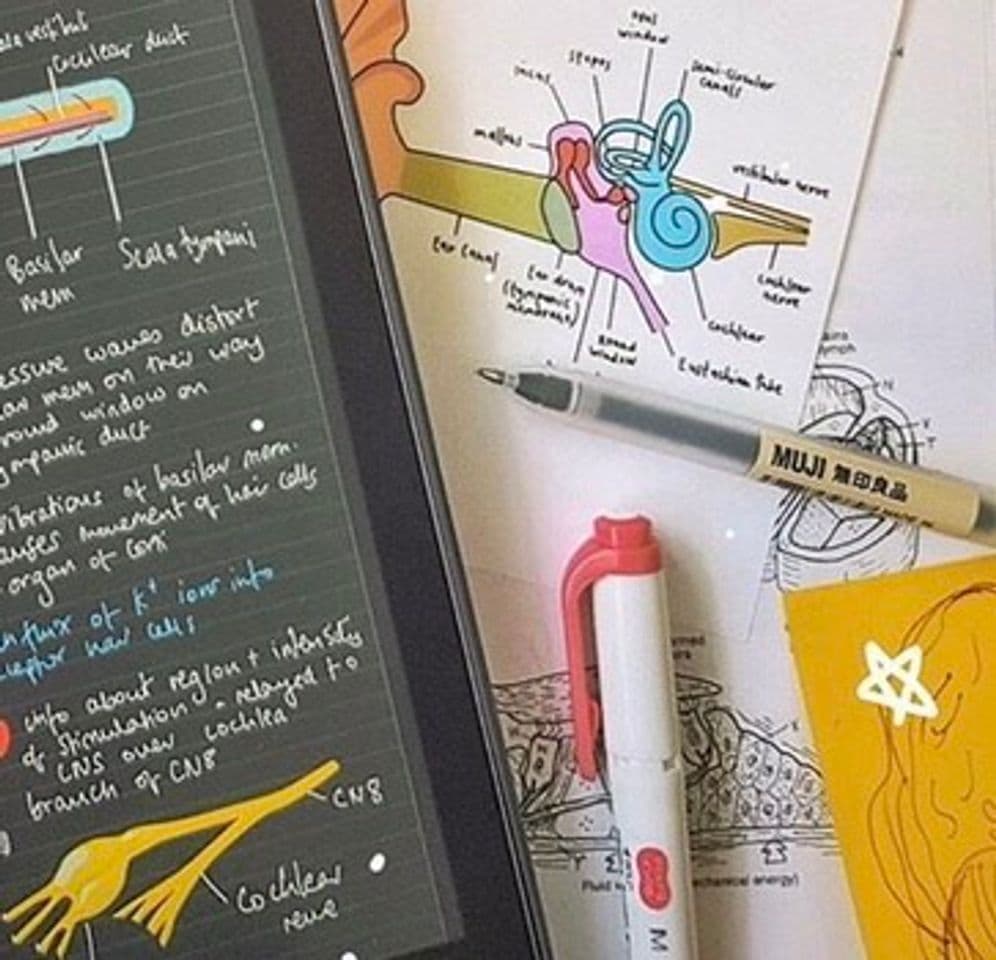 cochlear duct
Basilar
mem
Scala tympani
waves distort
mem on their way
round window on
tympanic duct
vibrations of basilar mem.
causes movement of hair cells
organ of Corti
influx of K+ ions into
receptor hair cells
info about region + intensity
of stimulation - relayed to
CNS over cochlea
branch of CN8
CN8
Cochlear
nerve
oval
window
stapes
semi-circular
canals
incus
malleus
vestibular nerve
Ear Canal
Ear drum
(tympanic)
membrane)
cochlear
nerve
cochlear
Round
window
Eustachian tube
MUJI 無印良品
lymph
N
Y
T
X
Y
Fluid
mechanical energy)
M